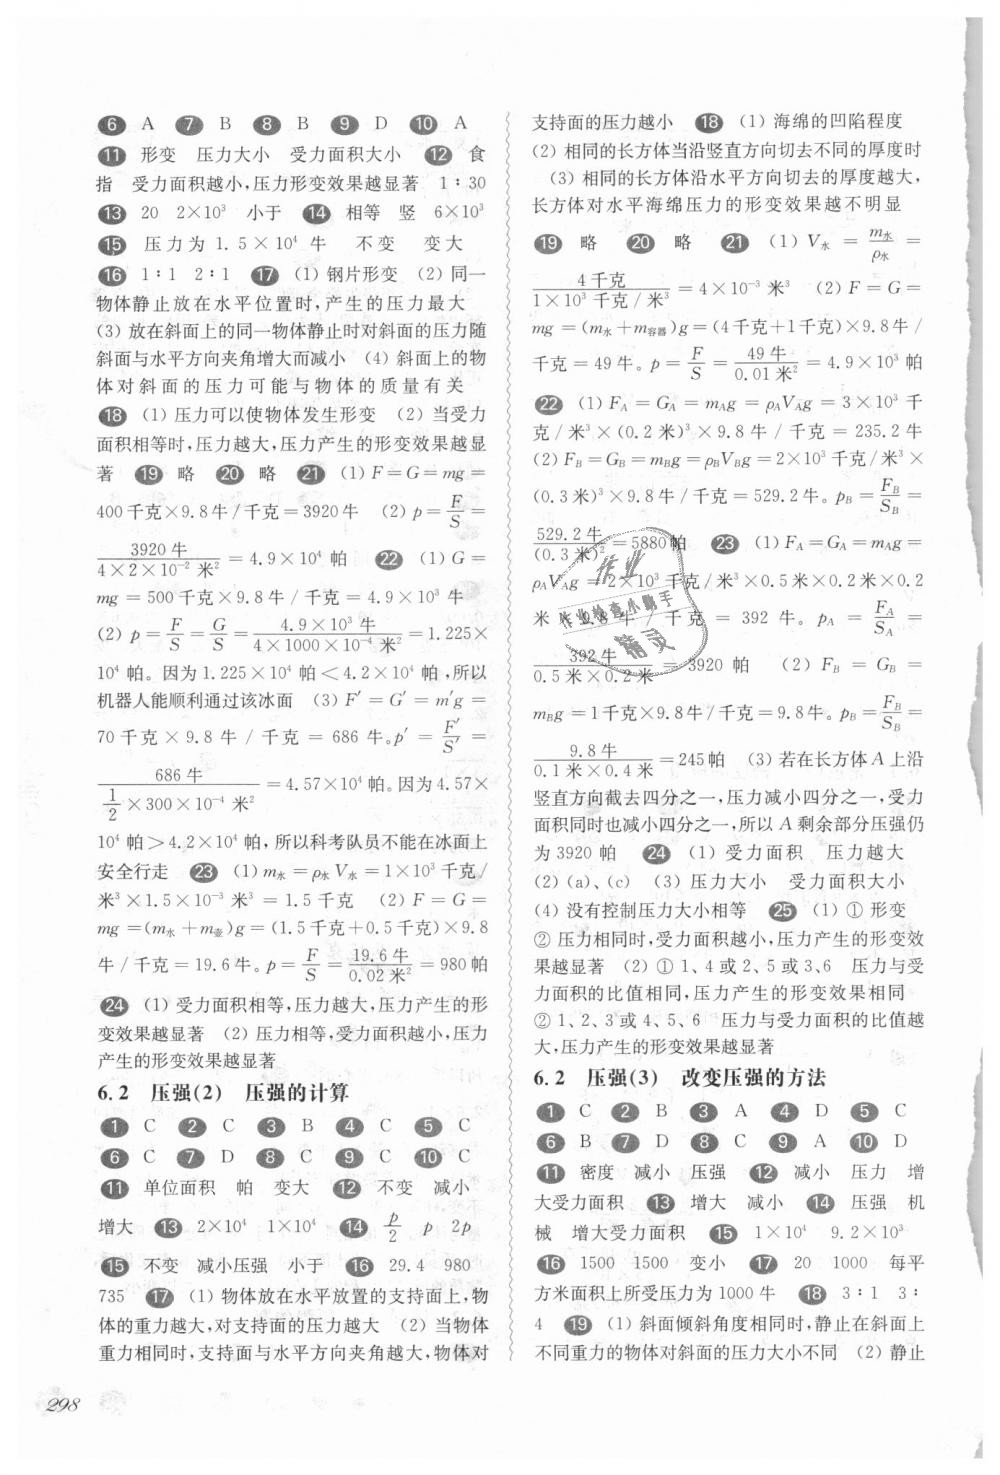 ⑥ A ⑦ B ⑧ B ⑨ D ⑩ A
⑪ 形变 压力大小 受力面积大小 ⑫ 食
指 受力面积越小,压力形变效果越显著 1∶30
⑬ 20 2×10³ 小于 ⑭ 相等 竖 6×10³
⑮ 压力为 1.5×10⁴ 牛 不变 变大
⑯ 1∶1 2∶1 ⑰ (1) 钢片形变 (2) 同一
物体静止放在水平位置时,产生的压力最大
(3) 放在斜面上的同一物体静止时对斜面的压力随
斜面与水平方向夹角增大而减小 (4) 斜面上的物
体对斜面的压力可能与物体的质量有关
⑱ (1) 压力可以使物体发生形变 (2) 当受力
面积相等时,压力越大,压力产生的形变效果越显
著 ⑲ 略 ⑳ 略 ㉑ (1) F=G=mg=
400千克×9.8牛/千克=3920牛 (2) p=F/S=
3920牛/(4×2×10⁻² 米²)=4.9×10⁴ 帕 ㉒ (1) G=
mg=500千克×9.8牛/千克=4.9×10³ 牛
(2) p=F/S=G/S=4.9×10³ 牛/(4×1000×10⁻⁴ 米²)=1.225×
10⁴ 帕。因为1.225×10⁴ 帕<4.2×10⁴ 帕,所以
机器人能顺利通过该冰面 (3) F′=G′=m′g=
70千克×9.8牛/千克=686牛。p′=F′/S′=
686牛/(1/2×300×10⁻⁴ 米²)=4.57×10⁴ 帕。因为4.57×
10⁴ 帕>4.2×10⁴ 帕,所以科考队员不能在冰面上
安全行走 ㉓ (1) m水=ρ水V水=1×10³ 千克/
米³×1.5×10⁻³ 米³=1.5千克 (2) F=G=
mg=(m水+m壶)g=(1.5千克+0.5千克)×9.8
牛/千克=19.6牛。p=F/S=19.6牛/0.02米²=980帕
㉔ (1) 受力面积相等,压力越大,压力产生的形
变效果越显著 (2) 压力相等,受力面积越小,压力
产生的形变效果越显著
6.2 压强(2) 压强的计算
① C ② C ③ B ④ C ⑤ C
⑥ C ⑦ D ⑧ C ⑨ C ⑩ C
⑪ 单位面积 帕 变大 ⑫ 不变 减小
增大 ⑬ 2×10⁴ 1×10⁴ ⑭ p/2 p 2p
⑮ 不变 减小压强 小于 ⑯ 29.4 980
735 ⑰ (1) 物体放在水平放置的支持面上,物
体的重力越大,对支持面的压力越大 (2) 当物体
重力相同时,支持面与水平方向夹角越大,物体对
298
支持面的压力越小 ⑱ (1) 海绵的凹陷程度
(2) 相同的长方体当沿竖直方向切去不同的厚度时
(3) 相同的长方体沿水平方向切去的厚度越大,
长方体对水平海绵压力的形变效果越不明显
⑲ 略 ⑳ 略 ㉑ (1) V水=m水/ρ水=
4千克/(1×10³ 千克/米³)=4×10⁻³ 米³ (2) F=G=
mg=(m水+m容器)g=(4千克+1千克)×9.8牛/
千克=49牛。p=F/S=49牛/0.01米²=4.9×10³ 帕
㉒ (1) FA=GA=mAg=ρAVAg=3×10³ 千
克/米³×(0.2米)³×9.8牛/千克=235.2牛
(2) FB=GB=mBg=ρBVBg=2×10³ 千克/米³×
(0.3米)³×9.8牛/千克=529.2牛。pB=FB/SB=
529.2牛/(0.3米)²=5880帕 ㉓ (1) FA=GA=mAg=
ρAVAg=2×10³ 千克/米³×0.5米×0.2米×0.2
米×9.8牛/千克=392牛。pA=FA/SA=
392牛/(0.5米×0.2米)=3920帕 (2) FB=GB=
mBg=1千克×9.8牛/千克=9.8牛。pB=FB/SB=
9.8牛/(0.1米×0.4米)=245帕 (3) 若在长方体A上沿
竖直方向截去四分之一,压力减小四分之一,受力
面积同时也减小四分之一,所以A剩余部分压强仍
为3920帕 ㉔ (1) 受力面积 压力越大
(2) (a)、(c) (3) 压力大小 受力面积大小
(4) 没有控制压力大小相等 ㉕ (1) ① 形变
② 压力相同时,受力面积越小,压力产生的形变效
果越显著 (2) ① 1、4或2、5或3、6 压力与受
力面积的比值相同,压力产生的形变效果相同
② 1、2、3或4、5、6 压力与受力面积的比值越
大,压力产生的形变效果越显著
6.2 压强(3) 改变压强的方法
① C ② B ③ A ④ D ⑤ C
⑥ B ⑦ D ⑧ C ⑨ A ⑩ D
⑪ 密度 减小 压强 ⑫ 减小 压力 增
大受力面积 ⑬ 增大 减小 ⑭ 压强 机
械 增大受力面积 ⑮ 1×10⁴ 9.2×10³
⑯ 1500 1500 变小 ⑰ 20 1000 每平
方米面积上所受压力为1000牛 ⑱ 3∶1 3∶
4 ⑲ (1) 斜面倾斜角度相同时,静止在斜面上
不同重力的物体对斜面的压力大小不同 (2) 静止
作业
作业检查小助手
精灵